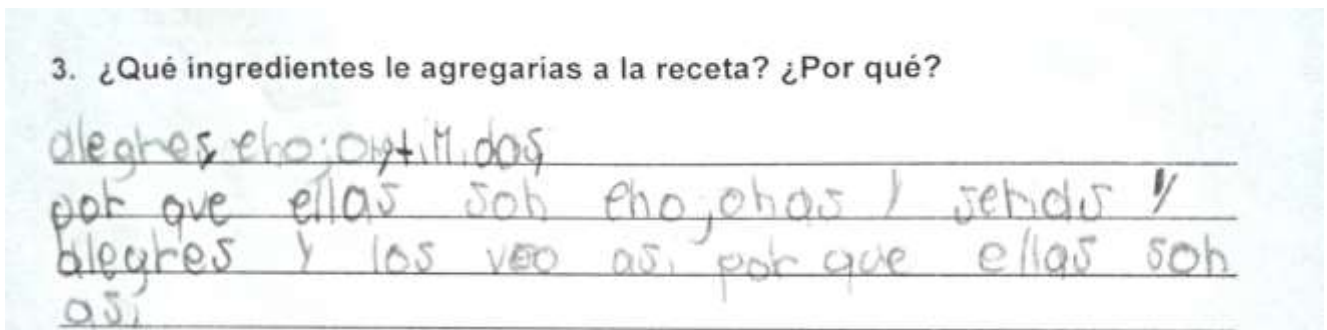 3. ¿Qué ingredientes le agregarías a la receta? ¿Por qué?
alegres, eno;on,timidos,
por que ellas son eno,onas y sendis y
alegres y los veo asi por que ellas son
asi